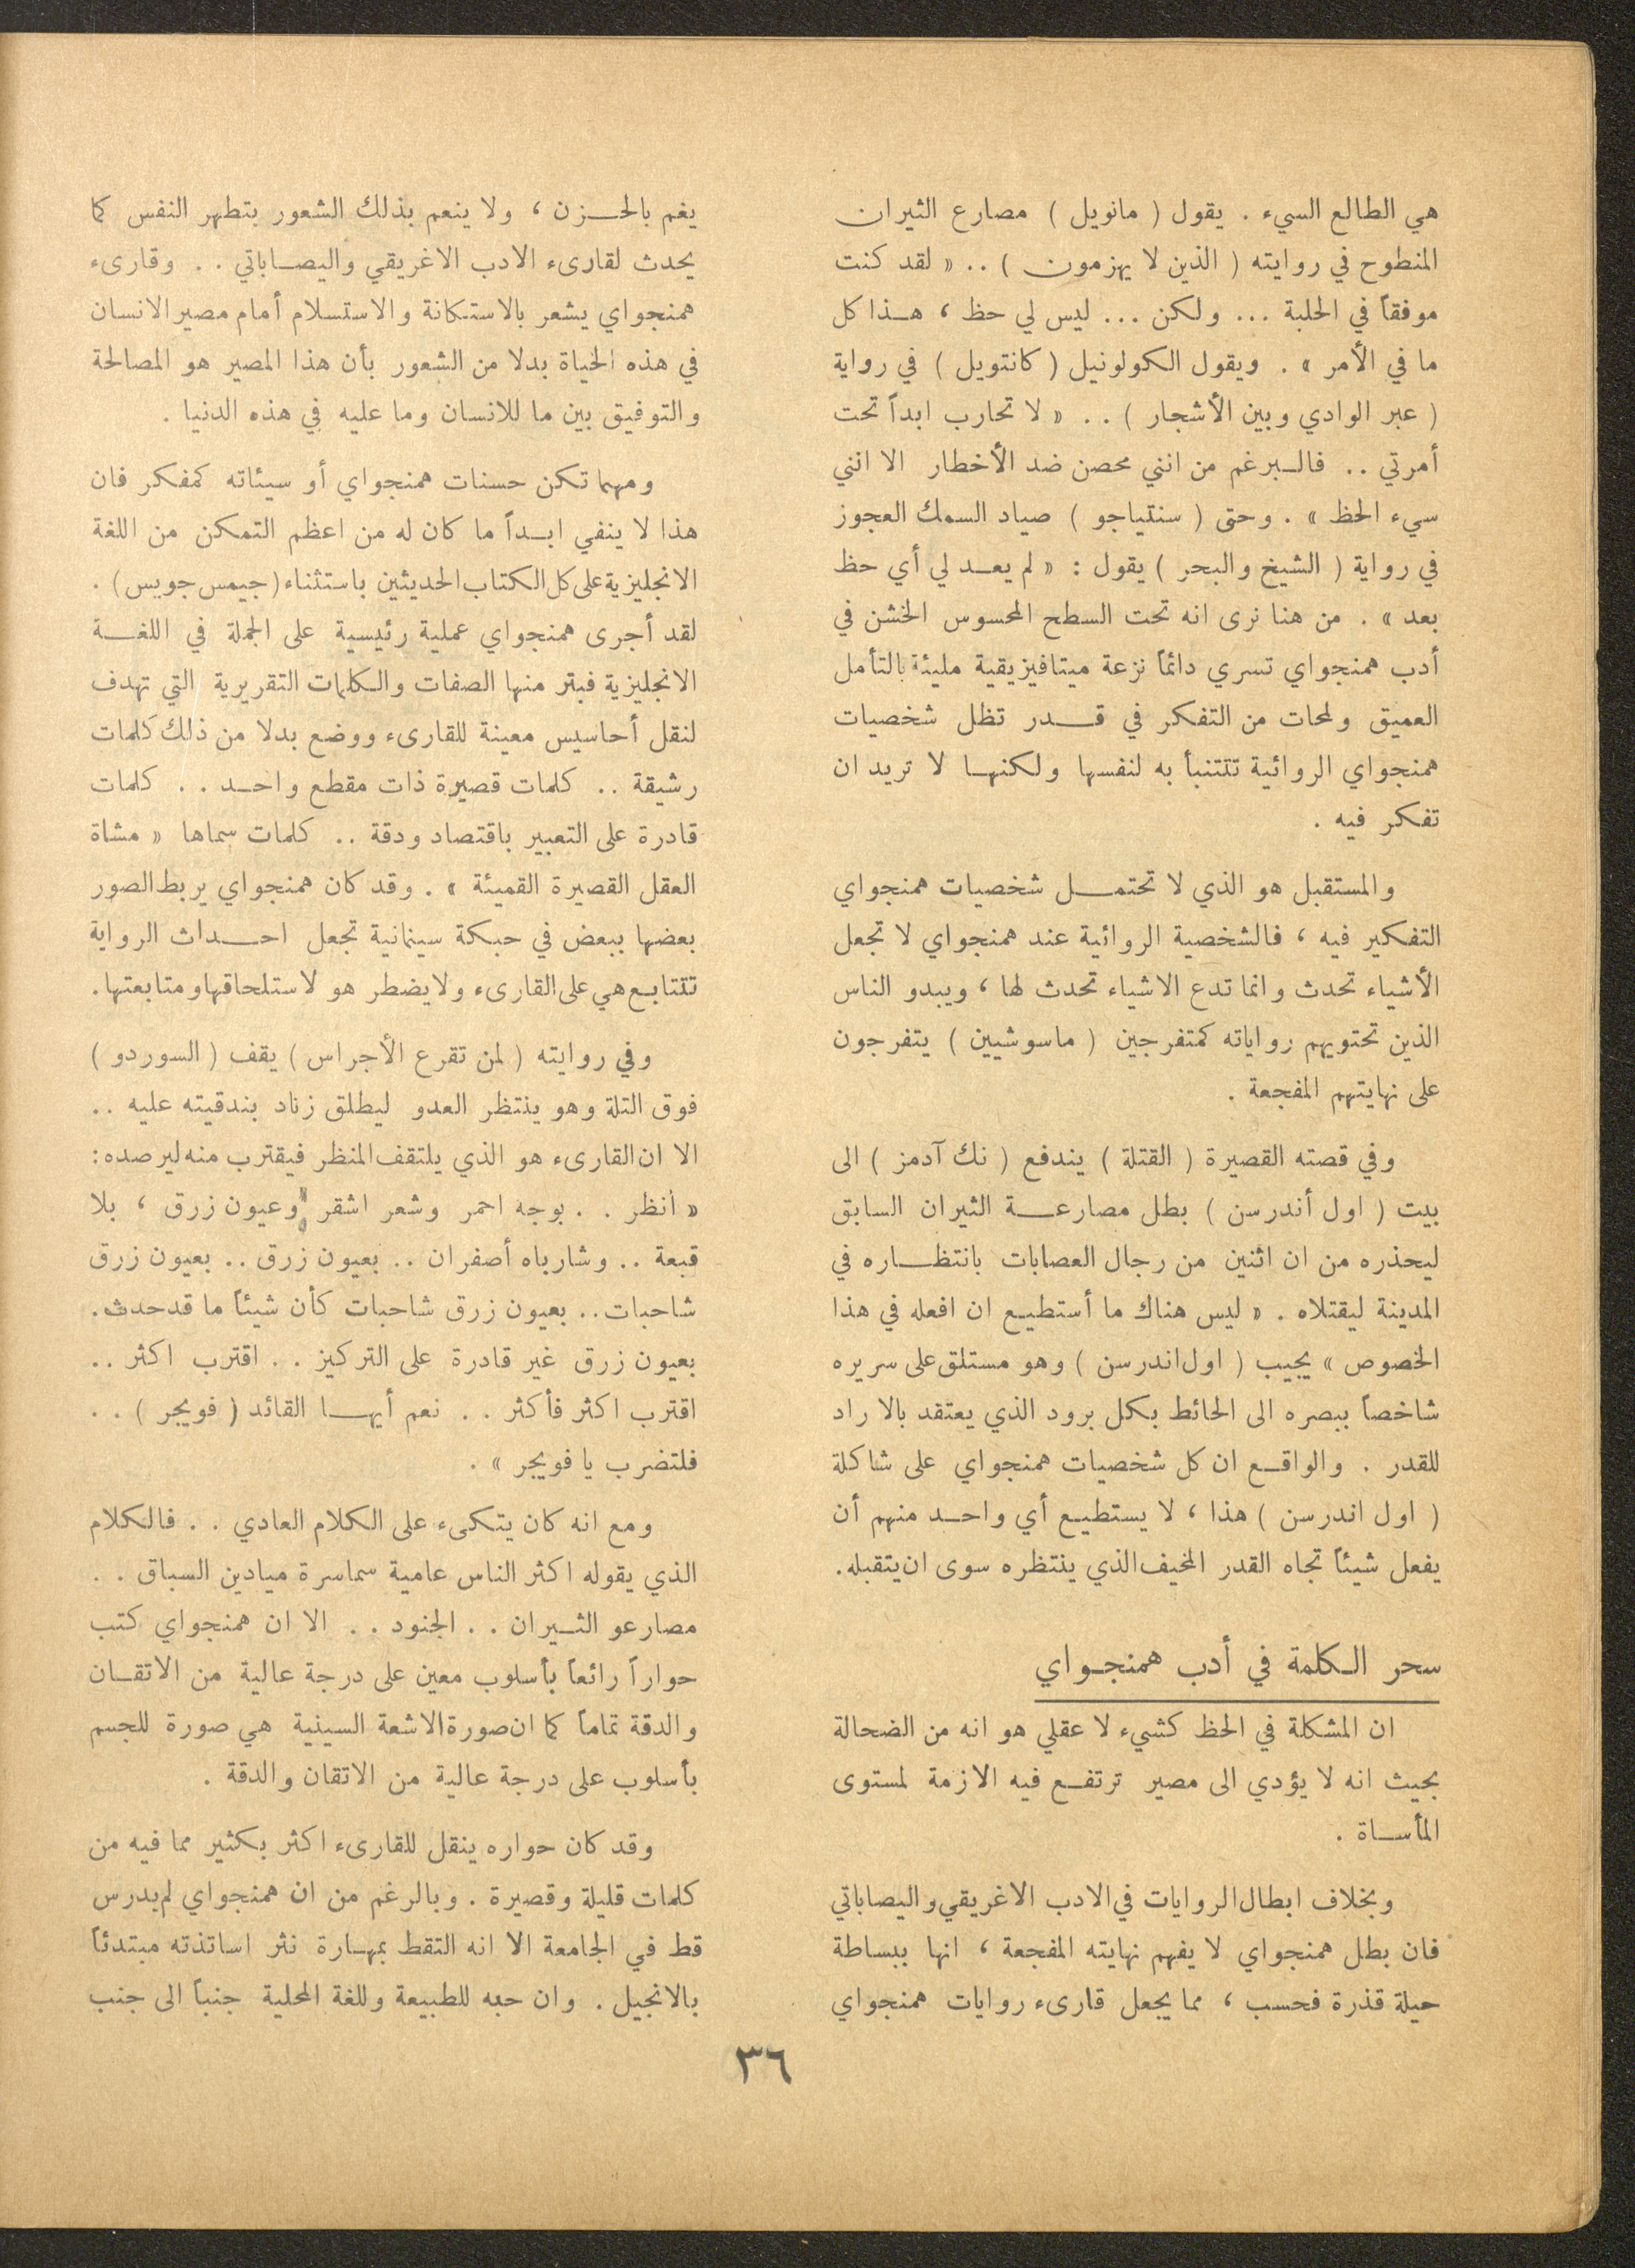 هي الطالع السيء . يقول ( مانويل ) مصارع الثيران
المنطوح في روايته ( الذين لا يهزمون ) .. « لقد كنت
موفقاً في الحلبة ... ولكن ... ليس لي حظ ، هذا كل
ما في الأمر » . ويقول الكولونيل ( كانتويل ) في رواية
( عبر الوادي وبين الأشجار ) .. « لا تحارب ابداً تحت
أمرتي .. فالبرغم من انني محصن ضد الأخطار الا انني
سيء الحظ » . وحتى ( سنتياجو ) صياد السمك العجوز
في رواية ( الشيخ والبحر ) يقول : « لم يعد لي أي حظ
بعد » . من هنا نرى انه تحت السطح المحسوس الخشن في
أدب همنجواي تسري دائماً نزعة ميتافيزيقية مليئة بالتأمل
العميق ولمحات من التفكر في قدر تظل شخصيات
همنجواي الروائية تتنبأ به لنفسها ولكنها لا تريد ان
تفكر فيه .
والمستقبل هو الذي لا تحتمل شخصيات همنجواي
التفكير فيه ، فالشخصية الروائية عند همنجواي لا تجعل
الأشياء تحدث وانما تدع الاشياء تحدث لها ، ويبدو الناس
الذين تحتويهم رواياته كمتفرجين ( ماسوشيين ) يتفرجون
على نهايتهم المفجعة .
وفي قصته القصيرة ( القتلة ) يندفع ( نك آدمز ) الى
بيت ( اول أندرسن ) بطل مصارعة الثيران السابق
ليحذره من ان اثنين من رجال العصابات بانتظاره في
المدينة ليقتلاه . « ليس هناك ما أستطيع ان افعله في هذا
الخصوص » يجيب ( اول اندرسن ) وهو مستلق على سريره
شاخصاً ببصره الى الحائط بكل برود الذي يعتقد بالا راد
للقدر . والواقع ان كل شخصيات همنجواي على شاكلة
( اول اندرسن ) هذا ، لا يستطيع أي واحد منهم أن
يفعل شيئاً تجاه القدر المخيف الذي ينتظره سوى ان يتقبله .
سحر الكلمة في أدب همنجواي
ان المشكلة في الحظ كشيء لا عقلي هو انه من الضحالة
بحيث انه لا يؤدي الى مصير ترتفع فيه الازمة لمستوى
المأساة .
وبخلاف ابطال الروايات في الادب الاغريقي واليصاباتي
فان بطل همنجواي لا يفهم نهايته المفجعة ، انها ببساطة
حيلة قذرة فحسب ، مما يجعل قارىء روايات همنجواي
يغم بالحزن ، ولا ينعم بذلك الشعور بتطهر النفس كما
يحدث لقارىء الادب الاغريقي واليصاباتي . . وقارىء
همنجواي يشعر بالاستكانة والاستسلام أمام مصير الانسان
في هذه الحياة بدلا من الشعور بأن هذا المصير هو المصالحة
والتوفيق بين ما للانسان وما عليه في هذه الدنيا .
ومهما تكن حسنات همنجواي أو سيئاته كمفكر فان
هذا لا ينفي ابداً ما كان له من اعظم التمكن من اللغة
الانجليزية على كل الكتاب الحديثين باستثناء ( جيمس جويس ) .
لقد أجرى همنجواي عملية رئيسية على الجملة في اللغة
الانجليزية فبتر منها الصفات والكلمات التقريرية التي تهدف
لنقل أحاسيس معينة للقارىء ووضع بدلا من ذلك كلمات
رشيقة .. كلمات قصيرة ذات مقطع واحد . . كلمات
قادرة على التعبير باقتصاد ودقة .. كلمات سماها « مشاة
العقل القصيرة القميئة » . وقد كان همنجواي يربط الصور
بعضها ببعض في حبكة سينمائية تجعل احداث الرواية
تتتابع هي على القارىء ولا يضطر هو لاستلحاقها ومتابعتها .
وفي روايته ( لمن تقرع الأجراس ) يقف ( السوردو )
فوق التلة وهو ينتظر العدو ليطلق زناد بندقيته عليه ..
الا ان القارىء هو الذي يلتقف المنظر فيقترب منه ليرصده :
« أنظر . . بوجه احمر وشعر اشقر وعيون زرق ، بلا
قبعة .. وشارباه أصفران .. بعيون زرق .. بعيون زرق
شاحبات .. بعيون زرق شاحبات كأن شيئاً ما قد حدث .
بعيون زرق غير قادرة على التركيز . . اقترب اكثر ..
اقترب اكثر فأكثر . . نعم أيها القائد ( فويجر ) . .
فلتضرب يا فويجر » .
ومع انه كان يتكىء على الكلام العادي . . فالكلام
الذي يقوله اكثر الناس عامية سماسرة ميادين السباق . .
مصارعو الثيران . . الجنود . . الا ان همنجواي كتب
حواراً رائعاً بأسلوب معين على درجة عالية من الاتقان
والدقة تماماً كما ان صورة الاشعة السينية هي صورة للجسم
بأسلوب على درجة عالية من الاتقان والدقة .
وقد كان حواره ينقل للقارىء اكثر بكثير مما فيه من
كلمات قليلة وقصيرة . وبالرغم من ان همنجواي لم يدرس
قط في الجامعة الا انه التقط بمهارة نثر اساتذته مبتدئاً
بالانجيل . وان حبه للطبيعة وللغة المحلية جنباً الى جنب
٣٦